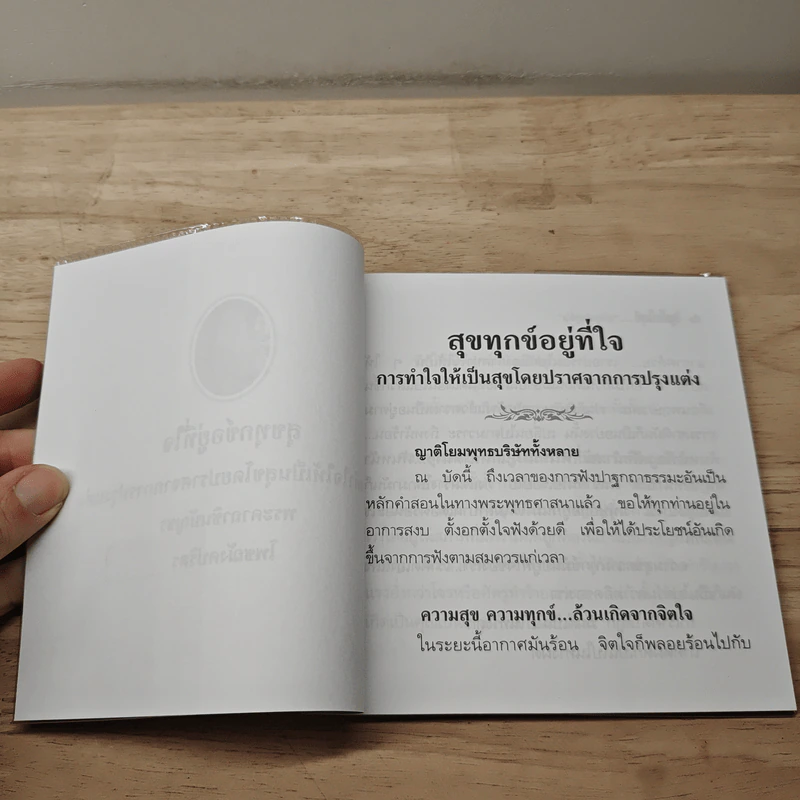 สุขทุกข์อยู่ที่ใจ
การทำใจให้เป็นสุขโดยปราศจากการปรุงแต่ง
ญาติโยมพุทธบริษัททั้งหลาย
ณ บัดนี้ ถึงเวลาของการฟังปาฐกถาธรรมะอันเป็น
หลักคำสอนในทางพระพุทธศาสนาแล้ว ขอให้ทุกท่านอยู่ใน
อาการสงบ ตั้งอกตั้งใจฟังด้วยดี เพื่อให้ได้ประโยชน์อันเกิด
ขึ้นจากการฟังตามสมควรแก่เวลา
ความสุข ความทุกข์...ล้วนเกิดจากจิตใจ
ในระยะนี้อากาศมันร้อน จิตใจก็พลอยร้อนไปกับ